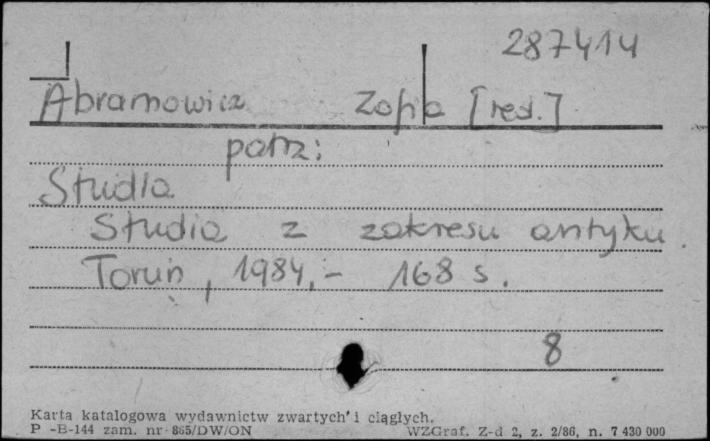 287414
Abramowicz Zofia [red.]
patrz:
Studia
Studia z zakresu antyku.
Toruń, 1984,- 168 s.
8
Karta katalogowa wydawnictw zwartych i ciągłych.
P -B-144 zam. nr 865/DW/ON WZGraf. Z-d 2, z. 2/86, n. 7 430 000